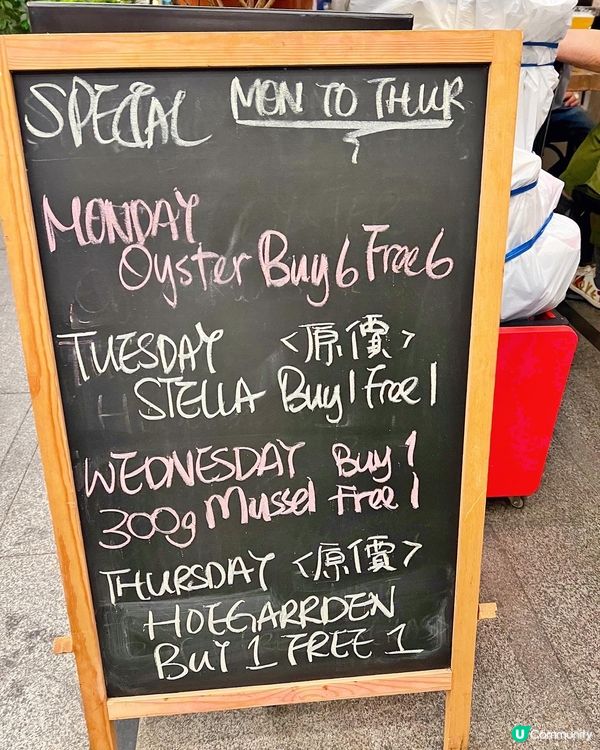 SPECIAL MON TO THUR
MONDAY
Oyster Buy 6 Free 6
TUESDAY <原價>
STELLA Buy 1 Free 1
WEDNESDAY Buy 1
300g Mussel Free 1
THURSDAY <原價>
HOEGARRDEN
BUY 1 FREE 1
U Community